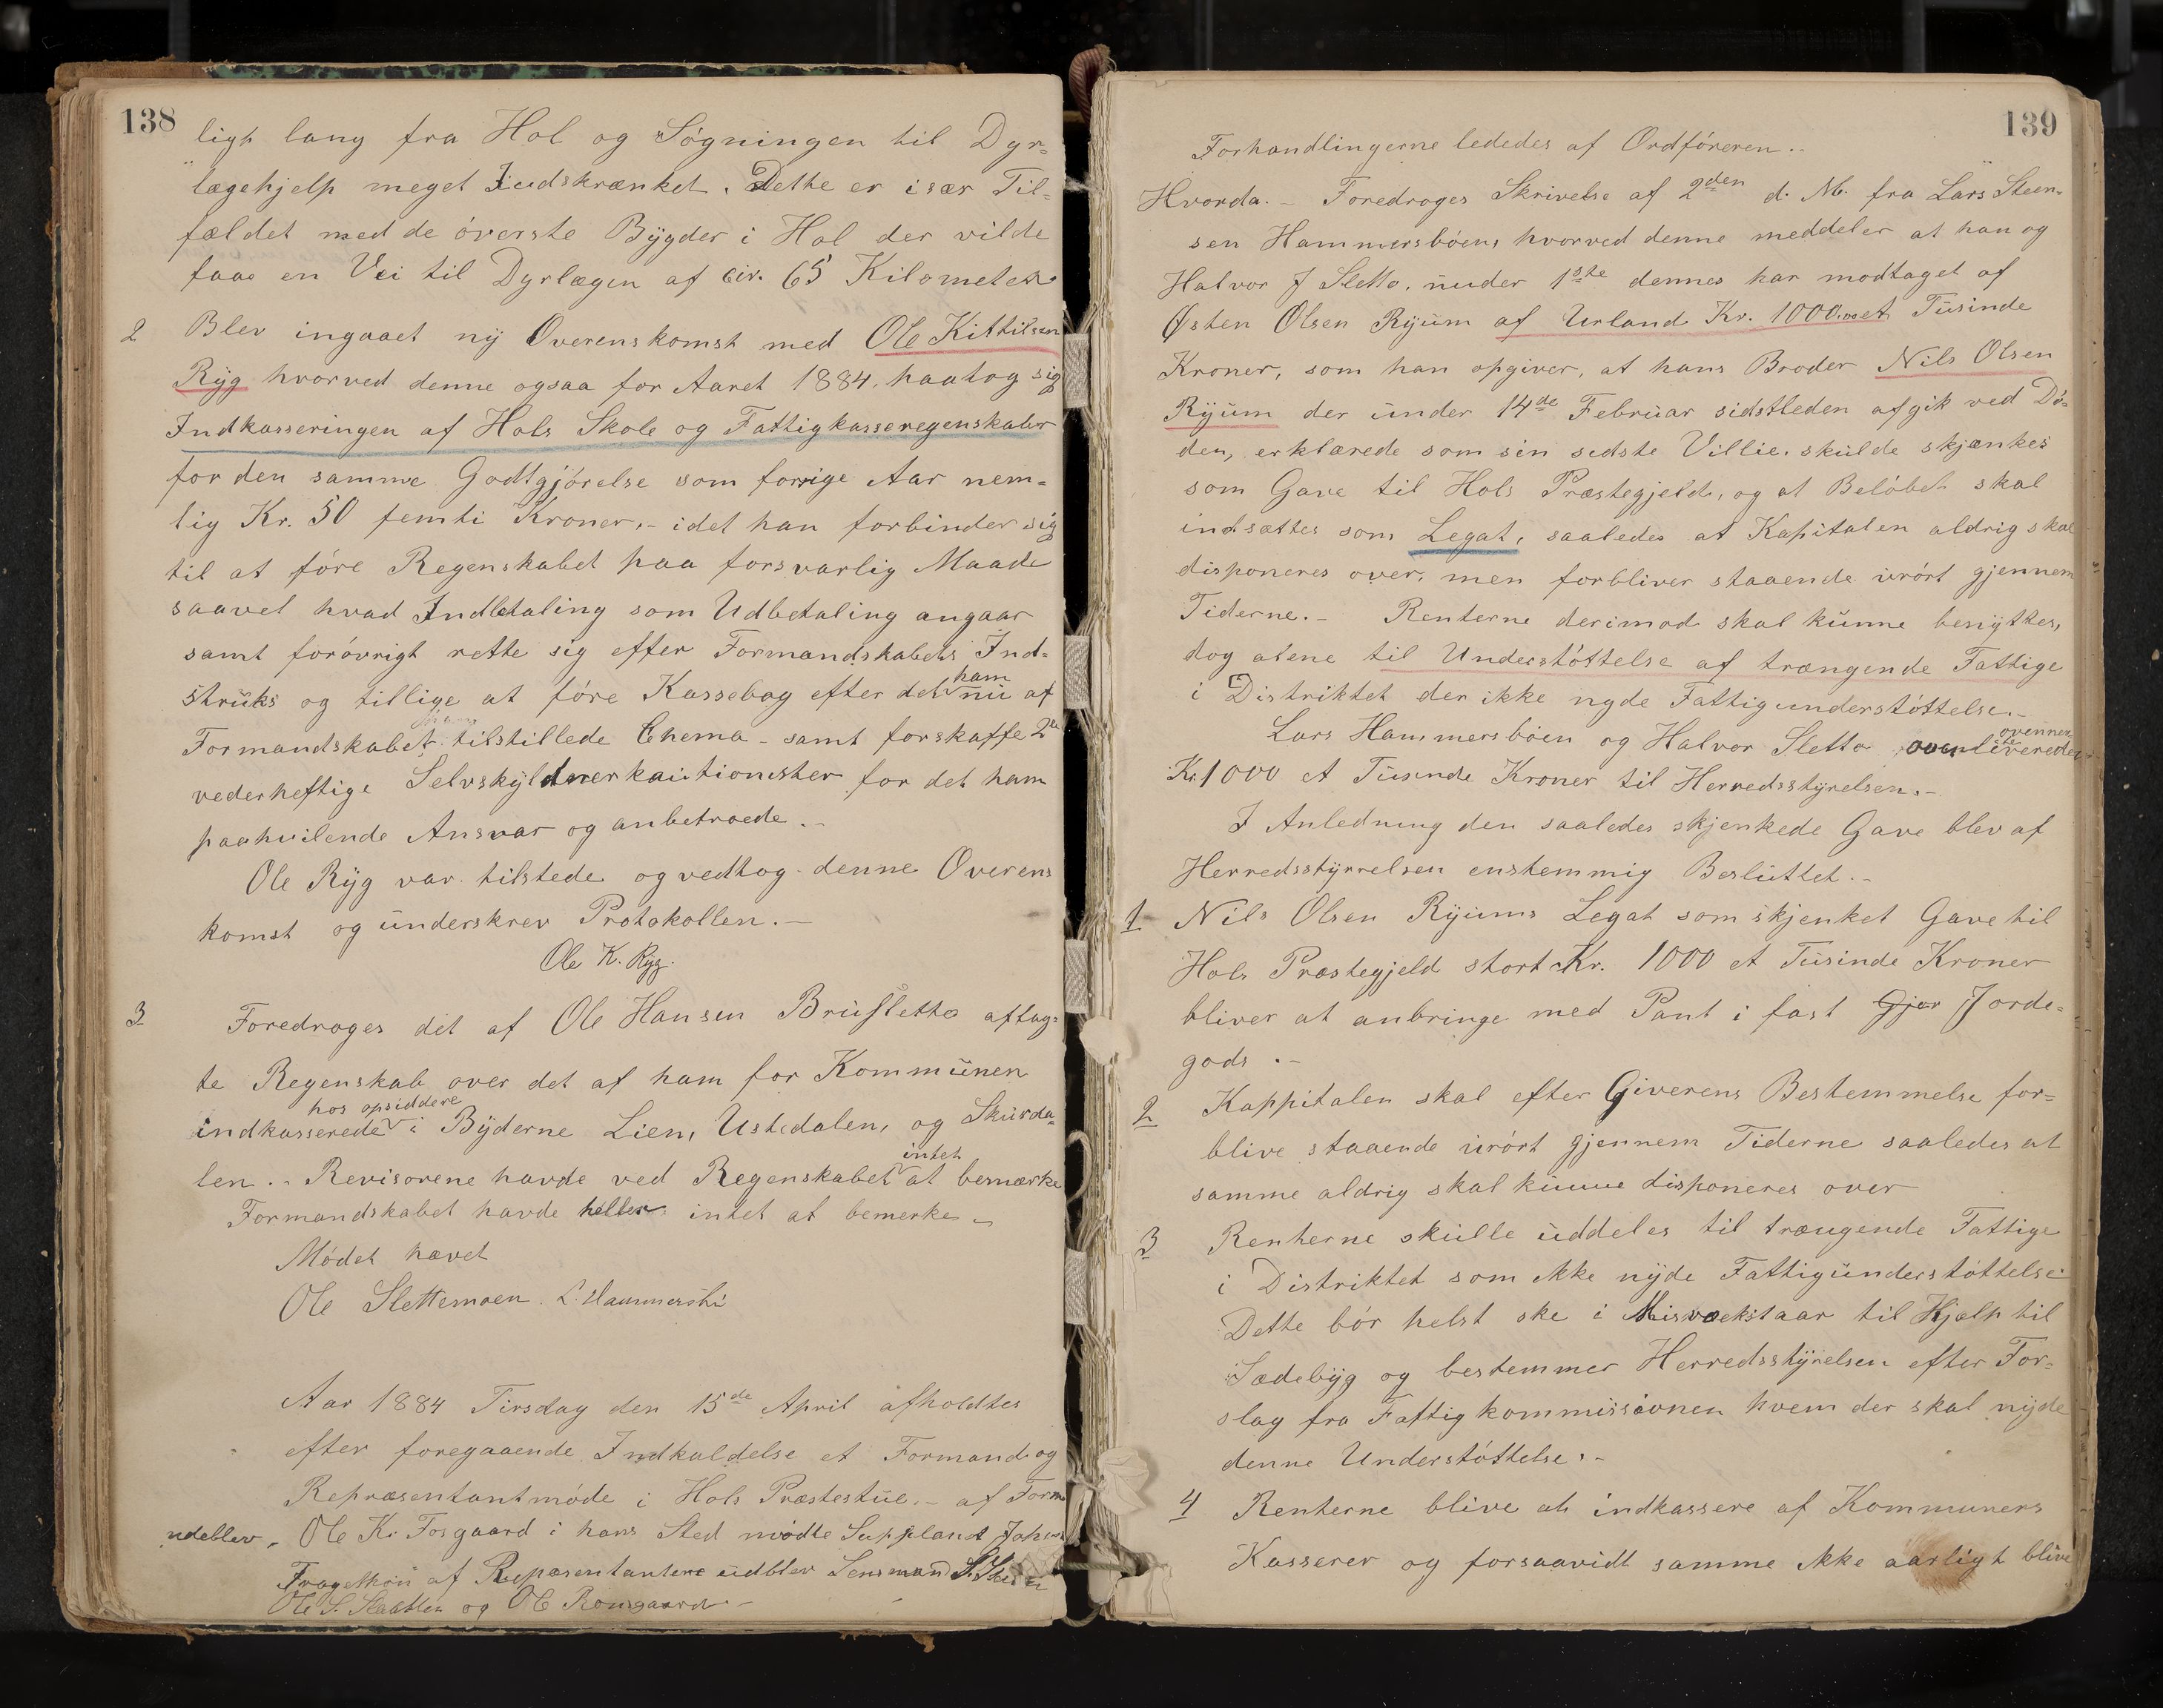 138
ligt lang fra Hol og Søgningen til Dyr=
lægehjelp meget Indskrænket. Dette er især Til=
fældet med de øverste Bygder i Hol der vilde
faae en Vei til Dyrlægen af cir. 65 Kilometer
2 Blev ingaaet ny Overenskomst med Ole Kittilsen
Ryg hvorved denne ogsaa for Aaret 1884, paatog sig
Indkasseringen af Hols Skole og Fattigkasseregenskaber
for den samme Godtgjørelse som forrige Aar nem=
lig Kr. 50 femti Kroner,- idet han forbinder sig
til at føre Regenskabet paa forsvarlig Maade
saavel hvad Indbetaling som Udbetaling angaar
samt forøvrigt rette sig efter Formandskabets Ind=
struks og tillige at føre Kassebog efter det ham nu af
Formandskabet tilstillede Chema - samt forskaffe 2de
vederheftige Selvskyldnerkautionister for det ham
paahvilende Ansvar og anbetroede.-
Ole Ryg var tilstede og vedtog denne Overens
komst og underskrev Protokollen.-
Ole K. Ryg.
3 Foredroges det af Ole Hansen Brusletto aflag=
te Regenskab over det af ham for Kommunen
indkasserede hos opsiddere i Byderne Lien, Ustedalen, og Skurda=
len.- Revisorene havde ved Regenskabet intet at bemærke
Formandskabet havde heller intet at bemerke
Mødet hævet
Ole Slettemoen. L. Hammersbø
Aar 1884 Tirsdag den 15de April afholdtes
efter foregaaende Indkaldelse et Formand og
Repræsentantmøde i Hols Præstestue.- af Form
udeblev, Ole K. Tosgaard i hans Sted mødte Supplant Johs
af Repræsentantere udblev Lensmand
Ole S. og Ole
139
Forhandlingerne lededes af Ordføreren.-
Hvorda.- Foredroges Skrivelse af 2den d. M. fra Lars Steen=
sen Hammersbøen, hvorved denne meddeler at han og
Halvor J Sletto, under 1ste dennes har modtaget af
Østen Olsen Ryum af Urland Kr. 1000.00 et Tusinde
Kroner, som han opgiver, at hans Broder Nils Olsen
Ryum der under 14de Februar sidstleden afgik ved Dø=
den, erklærede som sin sidste Villie, skulde skjænkes
som Gave til Hols Præstegjeld, og at Beløbet skal
indsættes som Legat, saaledes at Kapitalen aldrig skal
disponeres over, men forbliver staaende urørt gjennem
Tiderne.- Renterne derimod skal kunne benyttes,
dog alene til Understøttelse af trængende Fattige
i Distriktet der ikke nyde Fattigunderstøttelse.-
Lars Hammersbøen og Halvor Sletto overliverede ovennevnte
Kr. 1000 et Tusinde Kroner til Herredsstyrelsen.-
I Anledning den saaledes skjenkede Gave blev af
Herredsstyrrelsen enstemmig Besluttet.-
1 Nils Olsen Ryums Legat som skjenket Gave til
Hols Præstegjeld stort Kr. 1000 et Tusinde Kroner
bliver at anbringe med Pant i fast Gjer Jorde=
gods.-
2 Kappitalen skal efter Giverens Bestemmelse for=
blive staaende urørt gjennem Tiderne saaledes at
samme aldrig skal kunne disponeres over
3 Renterne skulle uddeles til trængende Fattige
i Distriktet som ikke nyde Fattigunderstøttelse
Dette bør helst ske i Misvækstaar til Hjælp til
Sædebyg og bestemmer Herredsstyrelsen efter For=
slag fra Fattigkommissionen hvem der skal nyde
denne Understøttelse.-
4 Renterne blive at indkassere af Kommunens
Kasserer og forsaavidt samme ikke aarligt blive